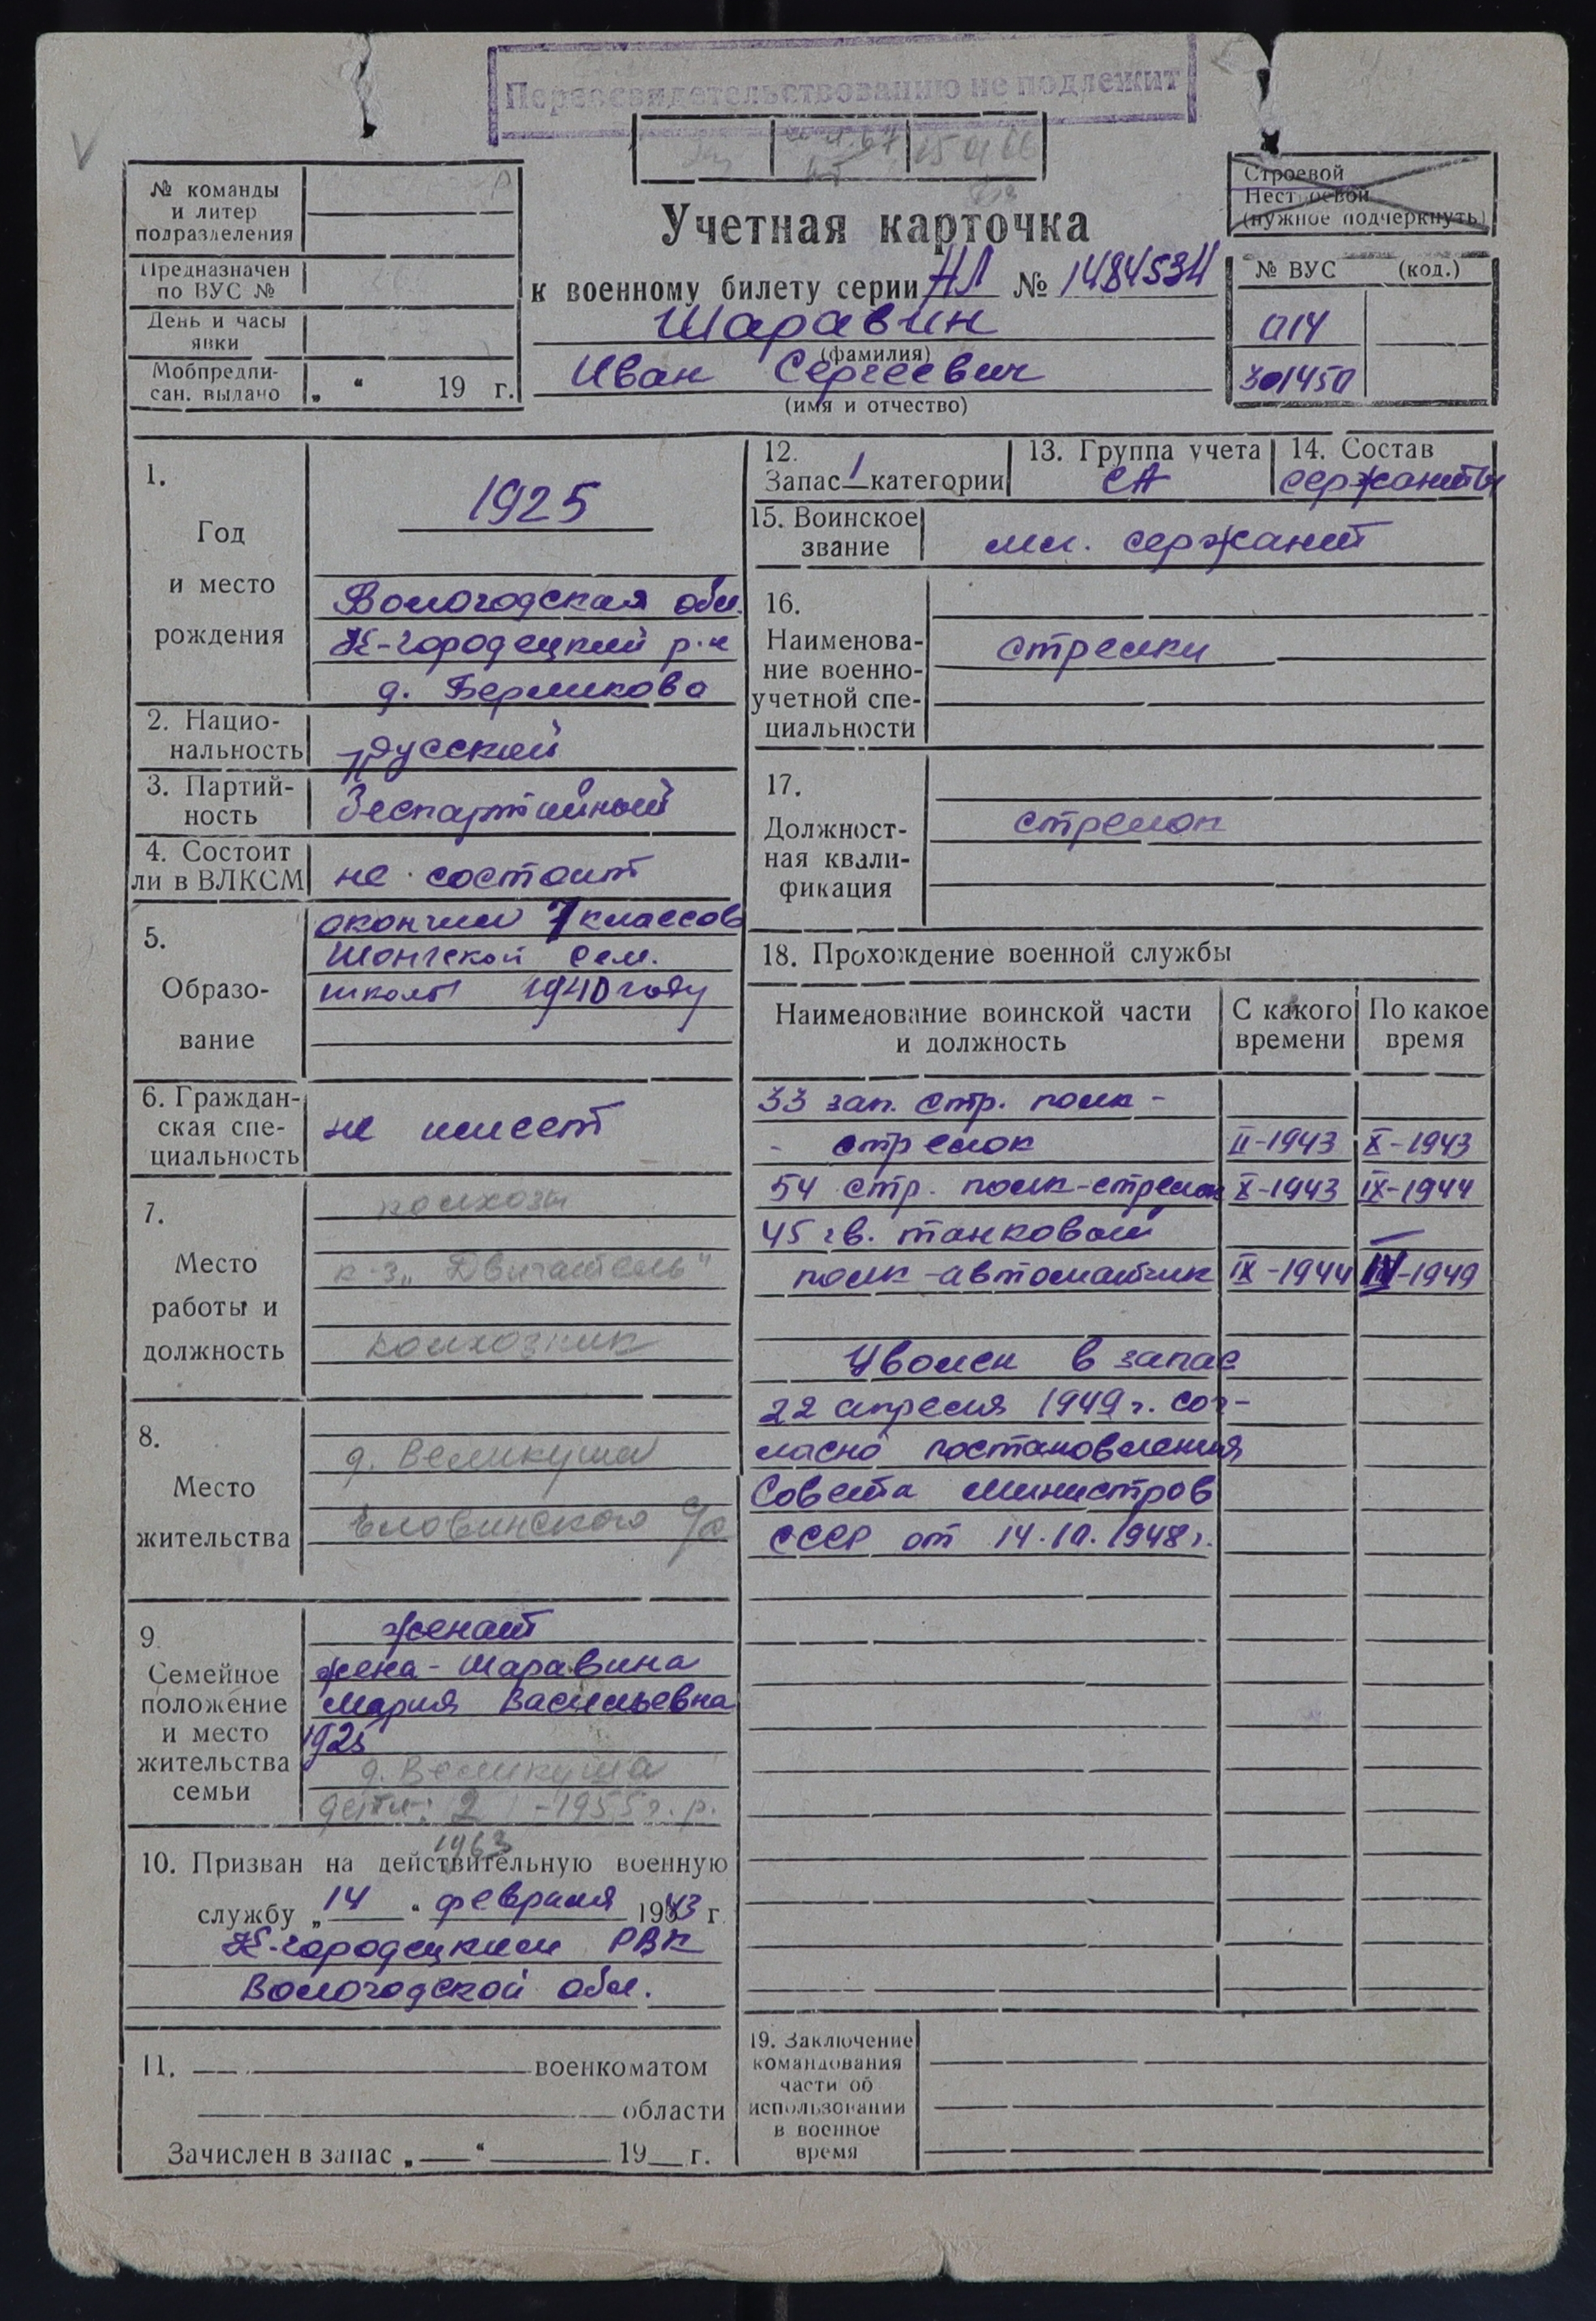 Переосвидетельствованию не подлежит
№ команды
и литер
подразделения
Предназначен
по ВУС №
День и часы
явки
Мобпредпи-
сан. выдано „ “ 19 г.
Учетная карточка
к военному билету серии НЛ №
Шаравин
(фамилия)
Иван Сергеевич
(имя и отчество)
Строевой
Нестроевой
(нужное подчеркнуть)
№ ВУС (код.)
014
301450
1.
Год
и место
рождения
1925
Вологодская обл.
К-городецкий р-н
д. Бермиково
2. Нацио-
нальность
русский
3. Партий-
ность
беспартийный
4. Состоит
ли в ВЛКСМ
не состоит
5.
Образо-
вание
окончил 7 классов
Шонгской сем.
школы 1940 году
6. Граждан-
ская спе-
циальность
не имеет
7.
Место
работы и
должность
колхозы
к-з „Двигатель“
колхозник
8.
Место
жительства
д. Великуша
Еловинского с/с
9
Семейное
положение
и место
жительства
семьи
женат
жена - Шаравина
Мария Васильевна
1925
д. Великуша
дети: 2 - 1955 г.р.
1963
10. Призван на действительную военную
службу „14“ февраля 1943 г.
К-городецким РВК
Вологодской обл.
11. военкоматом
области
Зачислен в запас „ “ 19 г.
12.
Запас 1 категории
13. Группа учета
СА
14. Состав
сержанты
15. Воинское
звание
мл. сержант
16.
Наименова-
ние военно-
учетной спе-
циальности
стрелки
17.
Должност-
ная квали-
фикация
стрелок
18. Прохождение военной службы
Наименование воинской части
и должность
С какого
времени
По какое
время
33 зап. стр. полк -
- стрелок II-1943 X-1943
54 стр. полк-стрелок X-1943 IX-1944
45 гв. танковый
полк-автоматчик IX-1944 IV-1949
Уволен в запас
22 апреля 1949 г. сог-
ласно постановления
Совета Министров
СССР от 14.10.1948 г.
19. Заключение
командования
части об
использовании
в военное
время